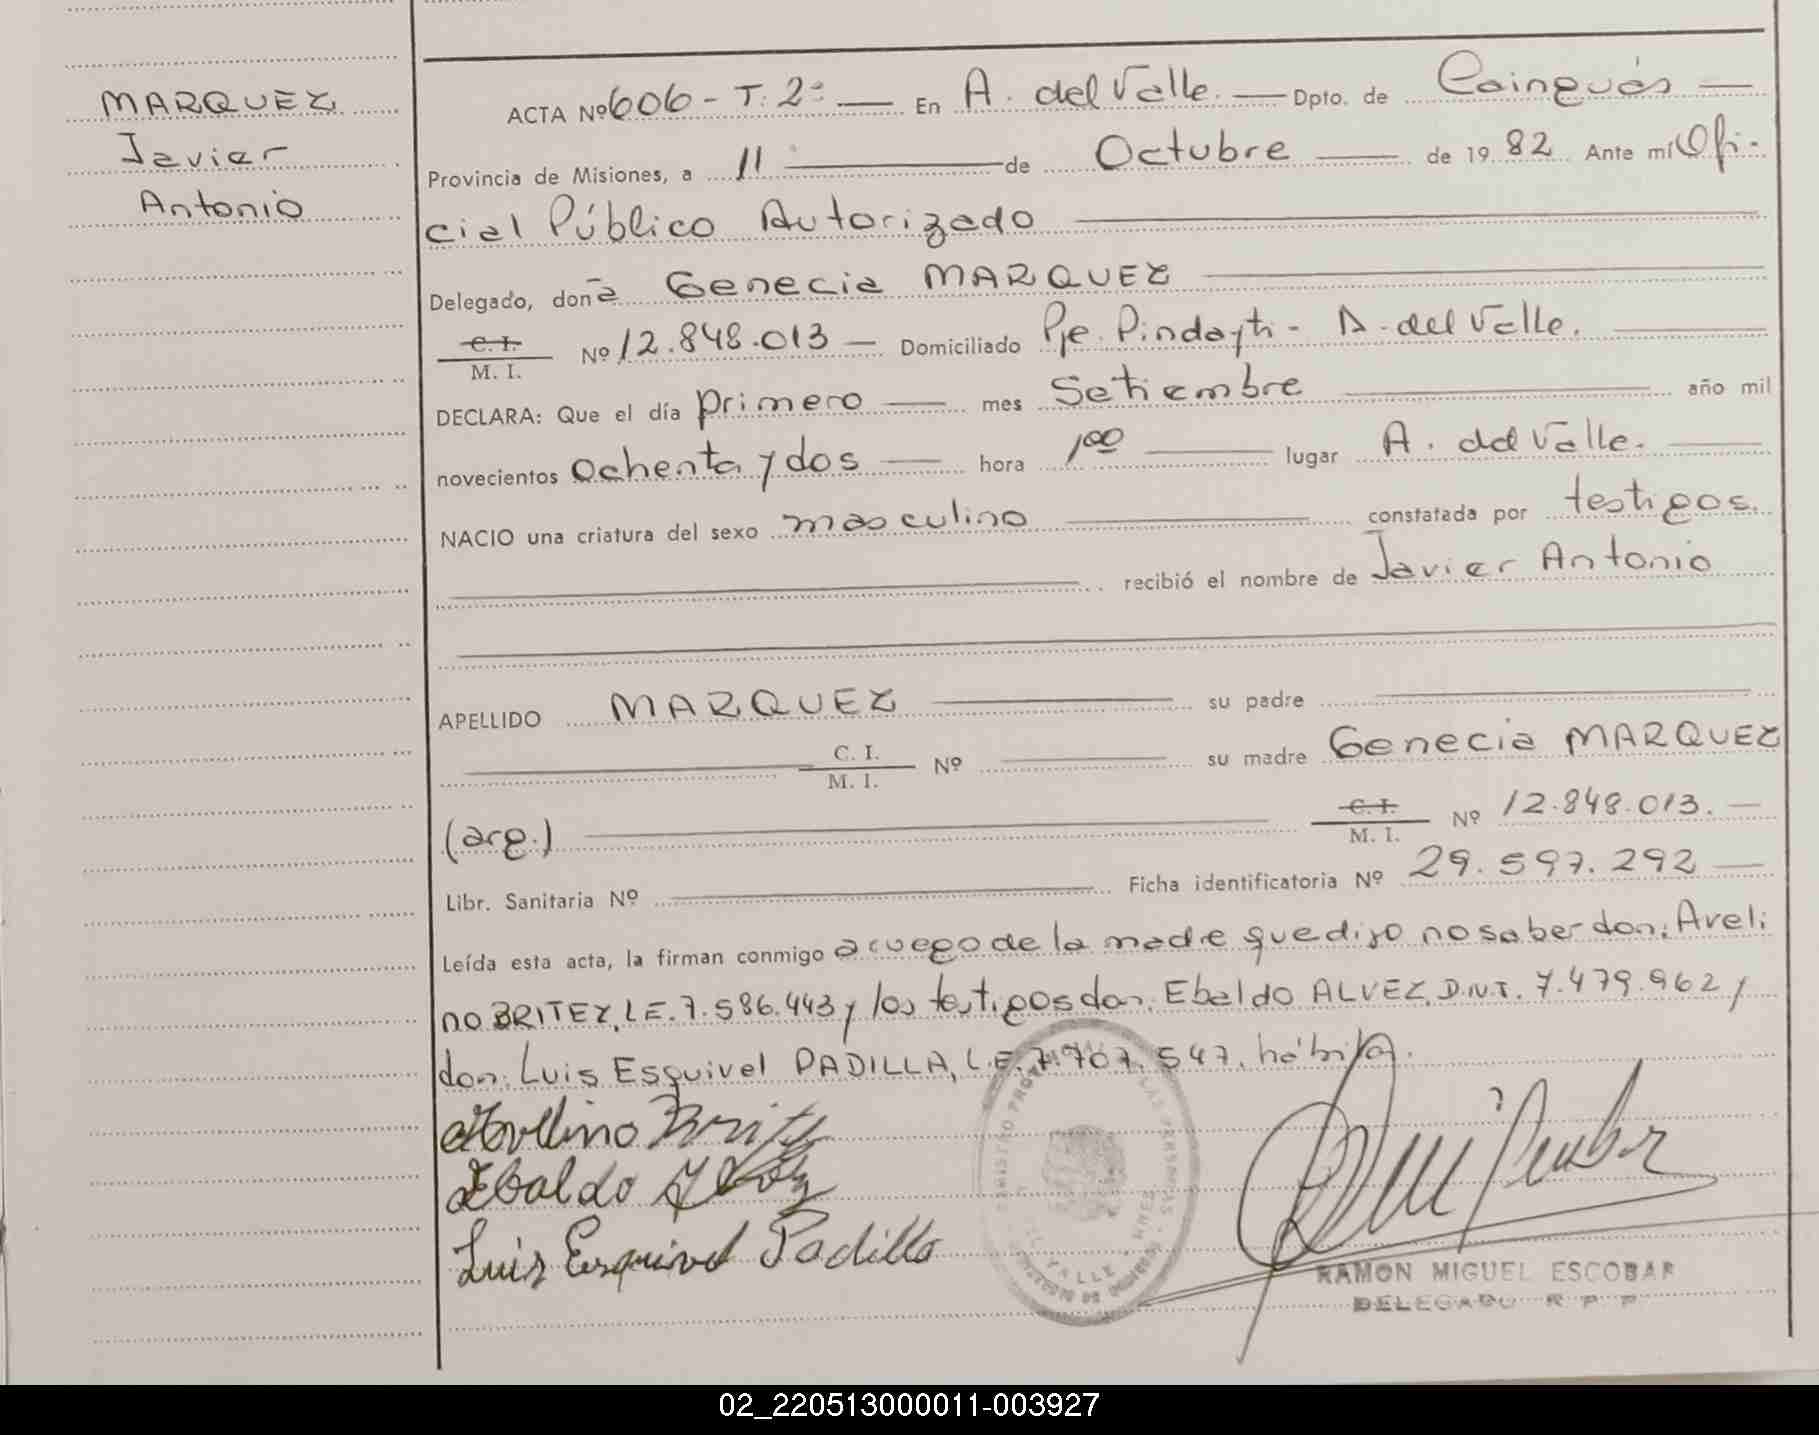 MARQUEZ
Javier
Antonio
ACTA Nº 606 - T. 2º — En A. del Valle. — Dpto. de Cainguás —
Provincia de Misiones, a 11 — de Octubre — de 1982 Ante mí Ofi-
cial Público Autorizado
Delegado, doña Genecia MARQUEZ
C. I.
M. I. Nº 12.848.013 — Domiciliado Pje. Pindayti - A. del Valle.
DECLARA: Que el día primero — mes Setiembre — año mil
novecientos ochenta y dos — hora 1ºº — lugar A. del Valle.
NACIO una criatura del sexo masculino — constatada por testigos.
recibió el nombre de Javier Antonio
APELLIDO MARQUEZ — su padre
C. I.
M. I. Nº — su madre Genecia MARQUEZ
(arg.) — C. I.
M. I. Nº 12.848.013. —
Libr. Sanitaria Nº — Ficha identificatoria Nº 29.597.292 —
Leída esta acta, la firman conmigo a ruego de la madre que dijo no saber don: Aveli-
no BRITEZ, L.E. 7.586.443 y los testigos don: Ebaldo ALVEZ, D.N.I. 7.479.962 y
don: Luis Esquivel PADILLA, L.E. 7.707.547, hábiles.
Avelino Britez
Ebaldo Alvez
Luis Esquivel Padilla
RAMON MIGUEL ESCOBAR
DELEGADO R P P
02_220513000011-003927